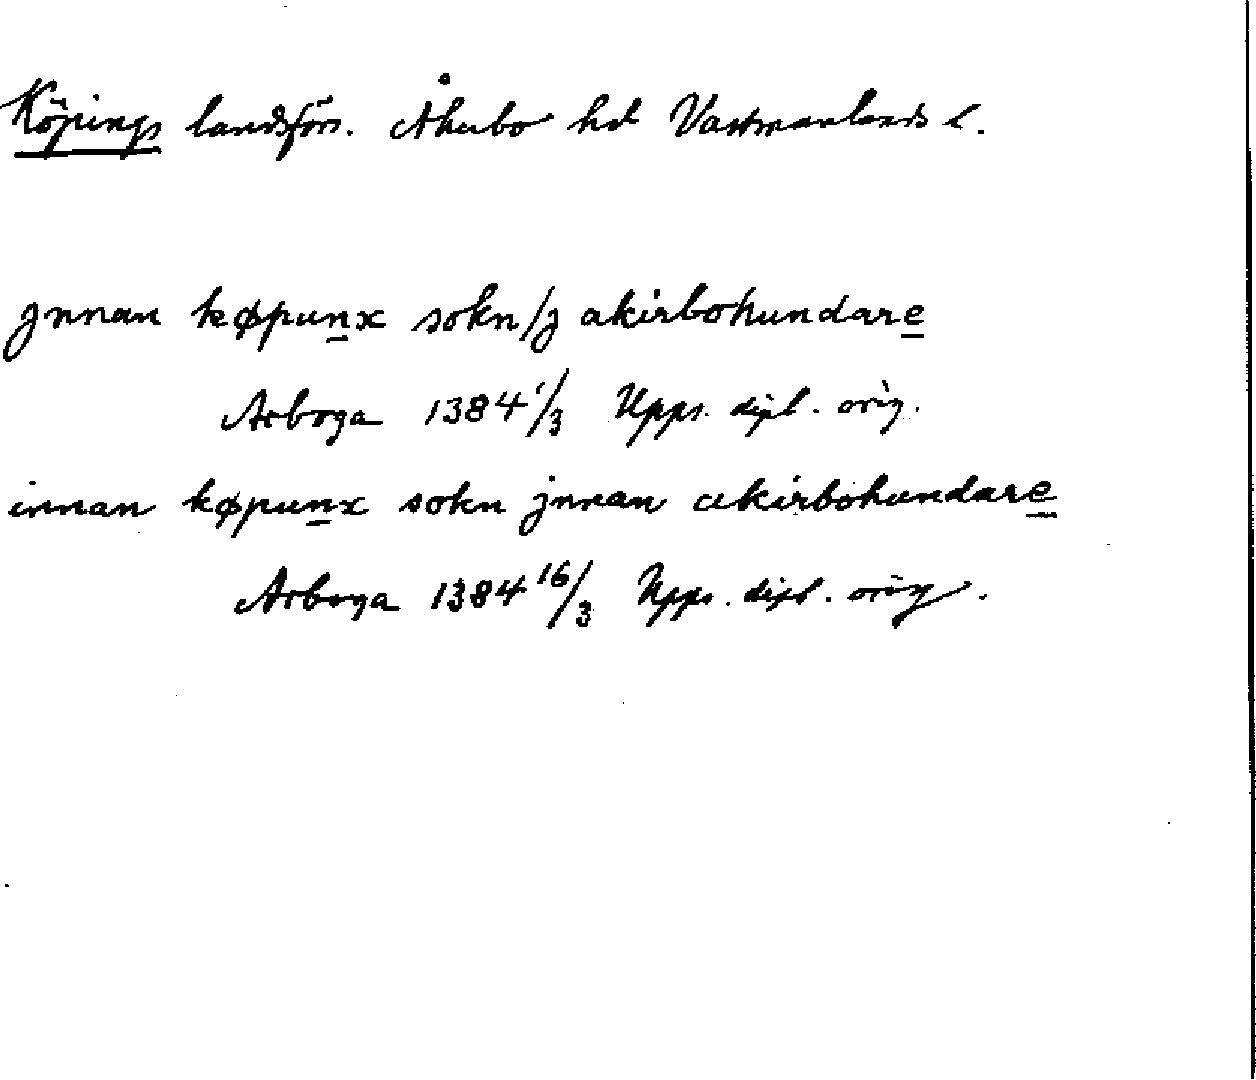 Köpings landsförs. Åkerbo hd Västmanlands l.
jnnan køpunx sokn/j akirbohundare
Arboga 1384 1/3 Upps. dipl. orig.
innan køpunx sokn jnnan akirbohundare
Arboga 1384 16/3 Upps. dipl. orig.